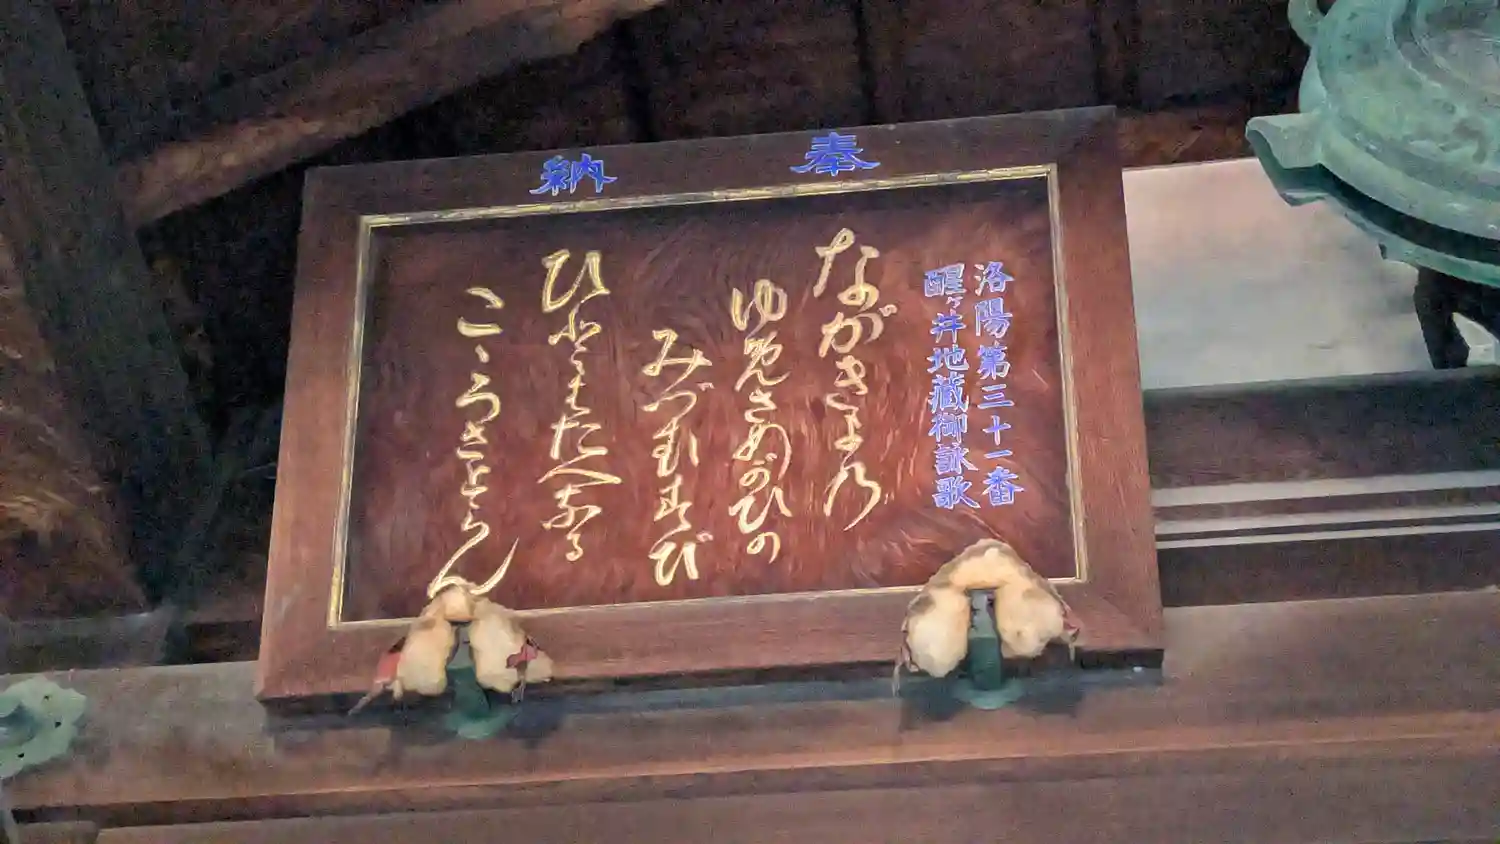 奉納
洛陽第三十一番
醒ヶ井地蔵御詠歌
ながきよ乃
ゆめさめがひの
みづむすび
ひともたへなる
こゝろさとらん